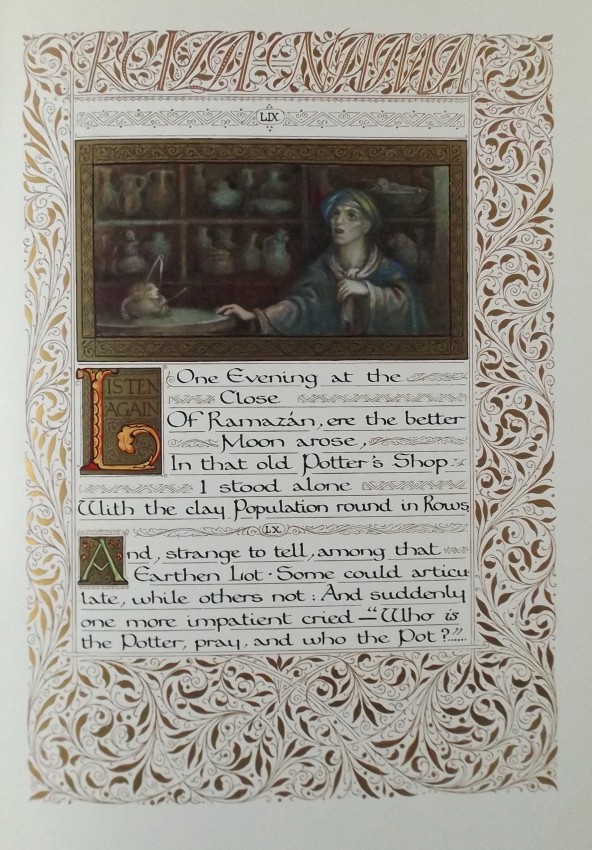 KUZA-NAMA
LIX
LISTEN
AGAIN
One Evening at the
Close
Of Ramazán, ere the better
Moon arose,
In that old Potter's Shop
I stood alone
With the clay Population round in Rows
LX
And, strange to tell, among that
Earthen Lot · Some could articu
late, while others not : And suddenly
one more impatient cried — "Who is
the Potter, pray, and who the Pot ?"